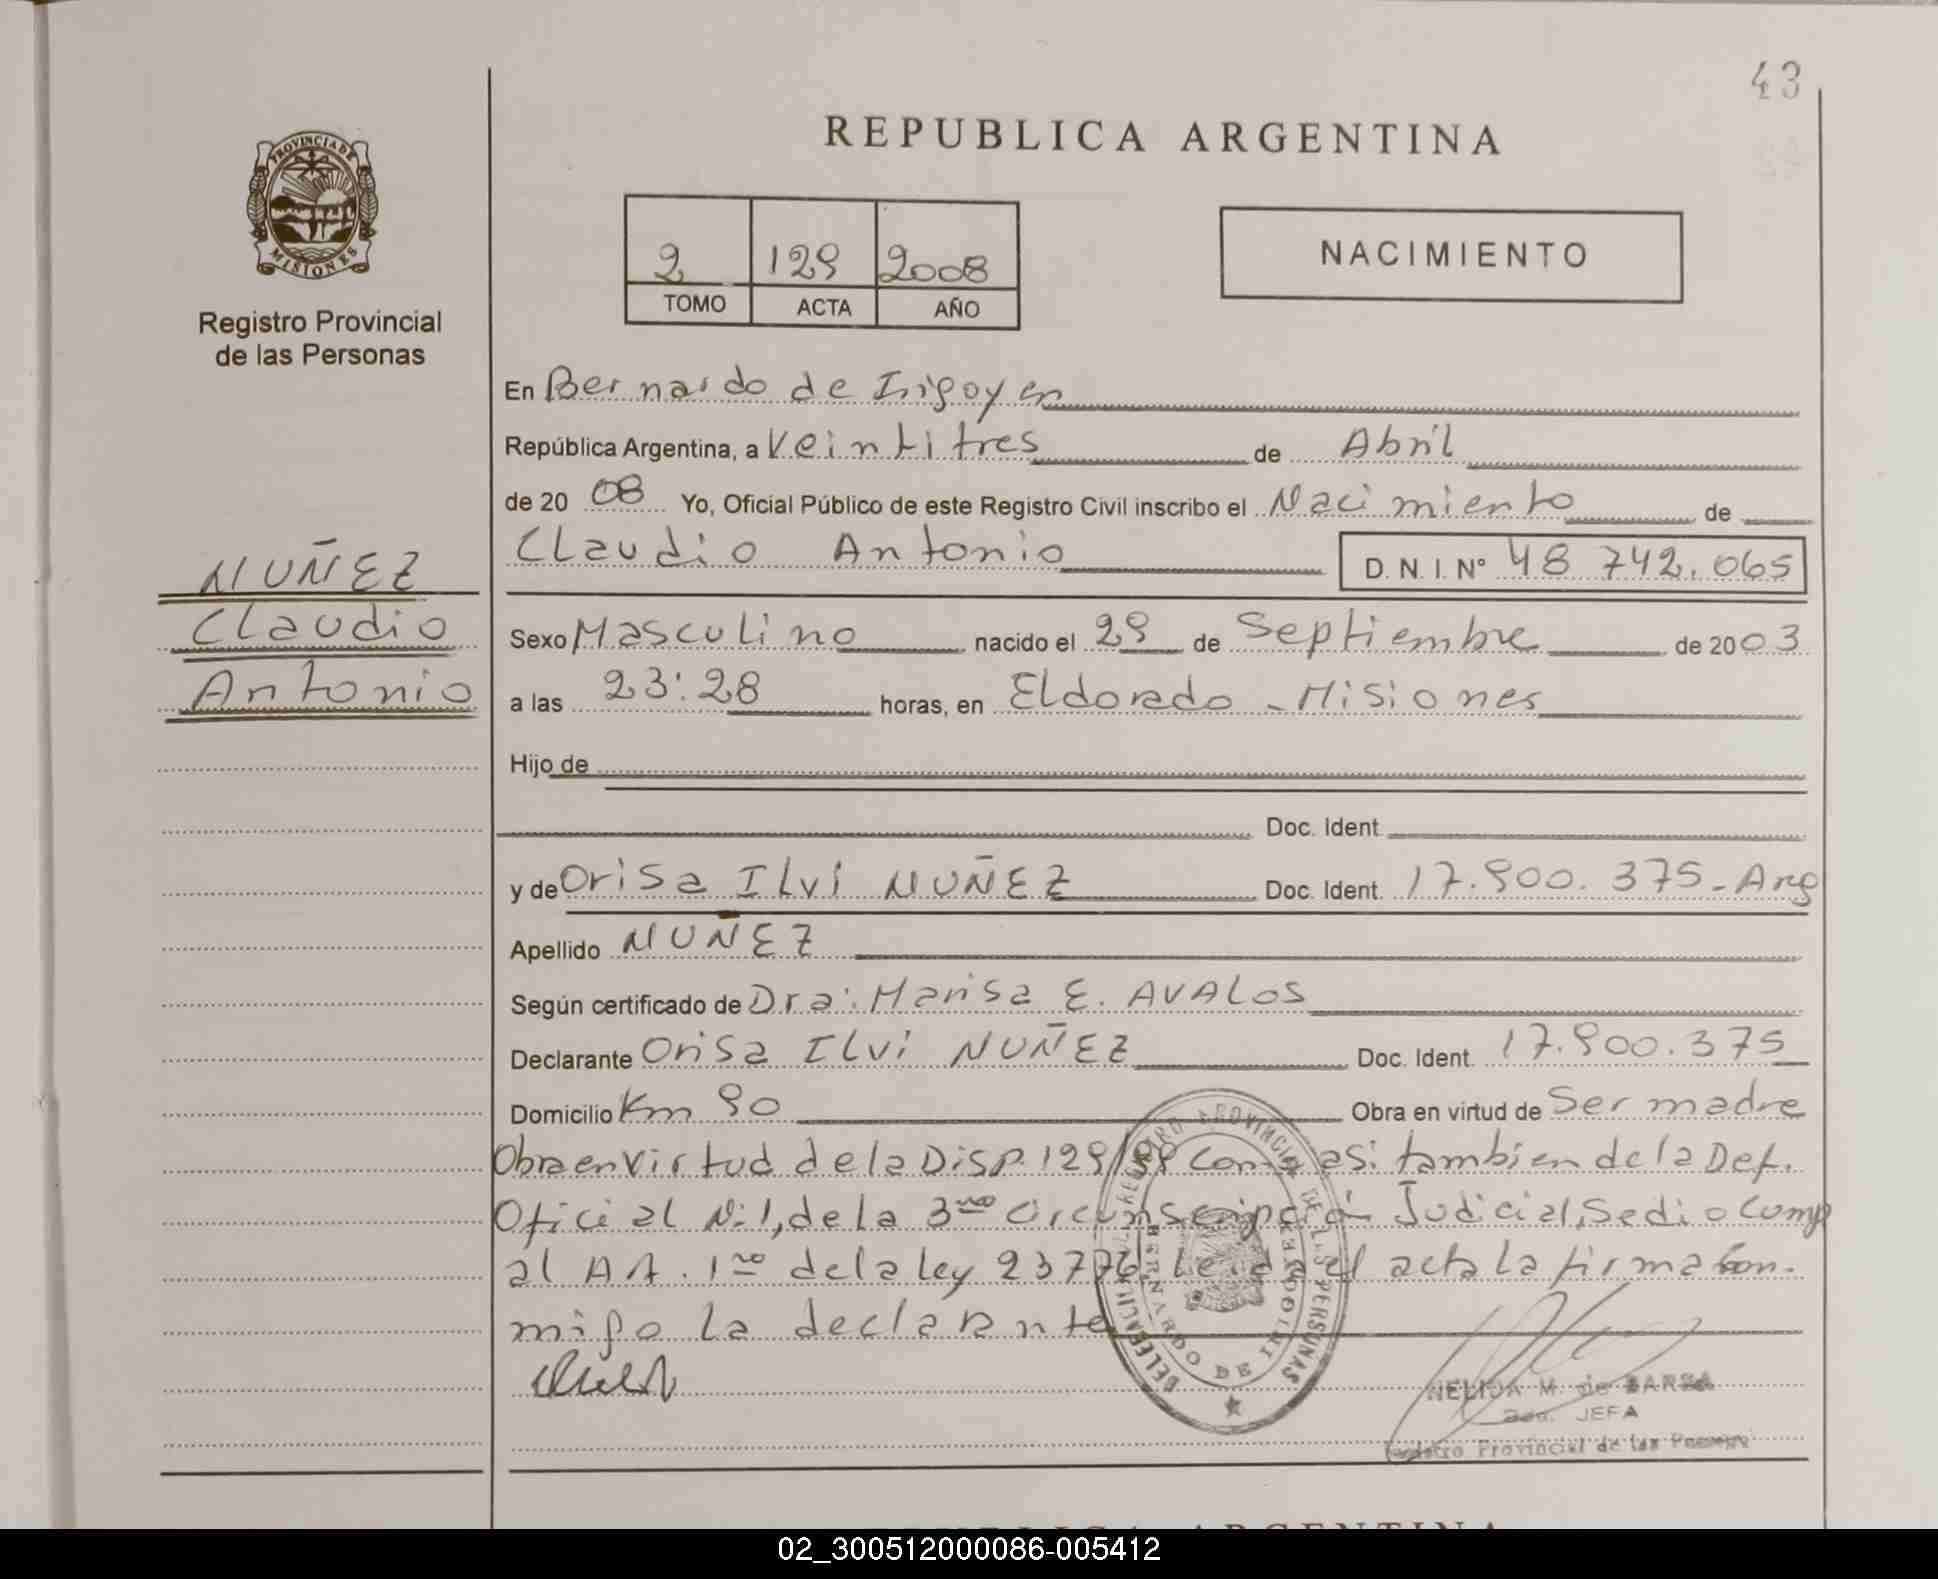 43
REPUBLICA ARGENTINA
PROVINCIA DE
MISIONES
Registro Provincial
de las Personas
2 129 2008
TOMO ACTA AÑO
NACIMIENTO
En Bernardo de Irigoyen
República Argentina, a Veintitres de Abril
de 20 08 Yo, Oficial Público de este Registro Civil inscribo el Nacimiento de
Claudio Antonio D. N. I. N° 48 742.065
NUÑEZ
Claudio
Antonio
Sexo Masculino nacido el 29 de Septiembre de 2003
a las 23:28 horas, en Eldorado - Misiones
Hijo de
Doc. Ident.
y de Orisa Ilvi NUÑEZ Doc. Ident. 17.900.375-Arg
Apellido NUÑEZ
Según certificado de Dra: Marisa E. AVALOS
Declarante Orisa Ilvi NUÑEZ Doc. Ident. 17.900.375
Domicilio Km 90 Obra en virtud de Ser madre
Obra en Virtud de la Disp. 129/98 Como asi tambien de la Def.
Oficial N:1, de la 3ra Circunscripción Judicial, Se dio Cump
al Art. 1ro de la ley 23776 Leida el acta la firma Con-
migo la declarante
DELEGACION REGISTRO PROVINCIAL DE LAS PERSONAS
BERNARDO DE IRIGOYEN
NELIDA M. de
JEFA
Registro Provincial de las Personas
REPUBLICA ARGENTINA
02_300512000086-005412